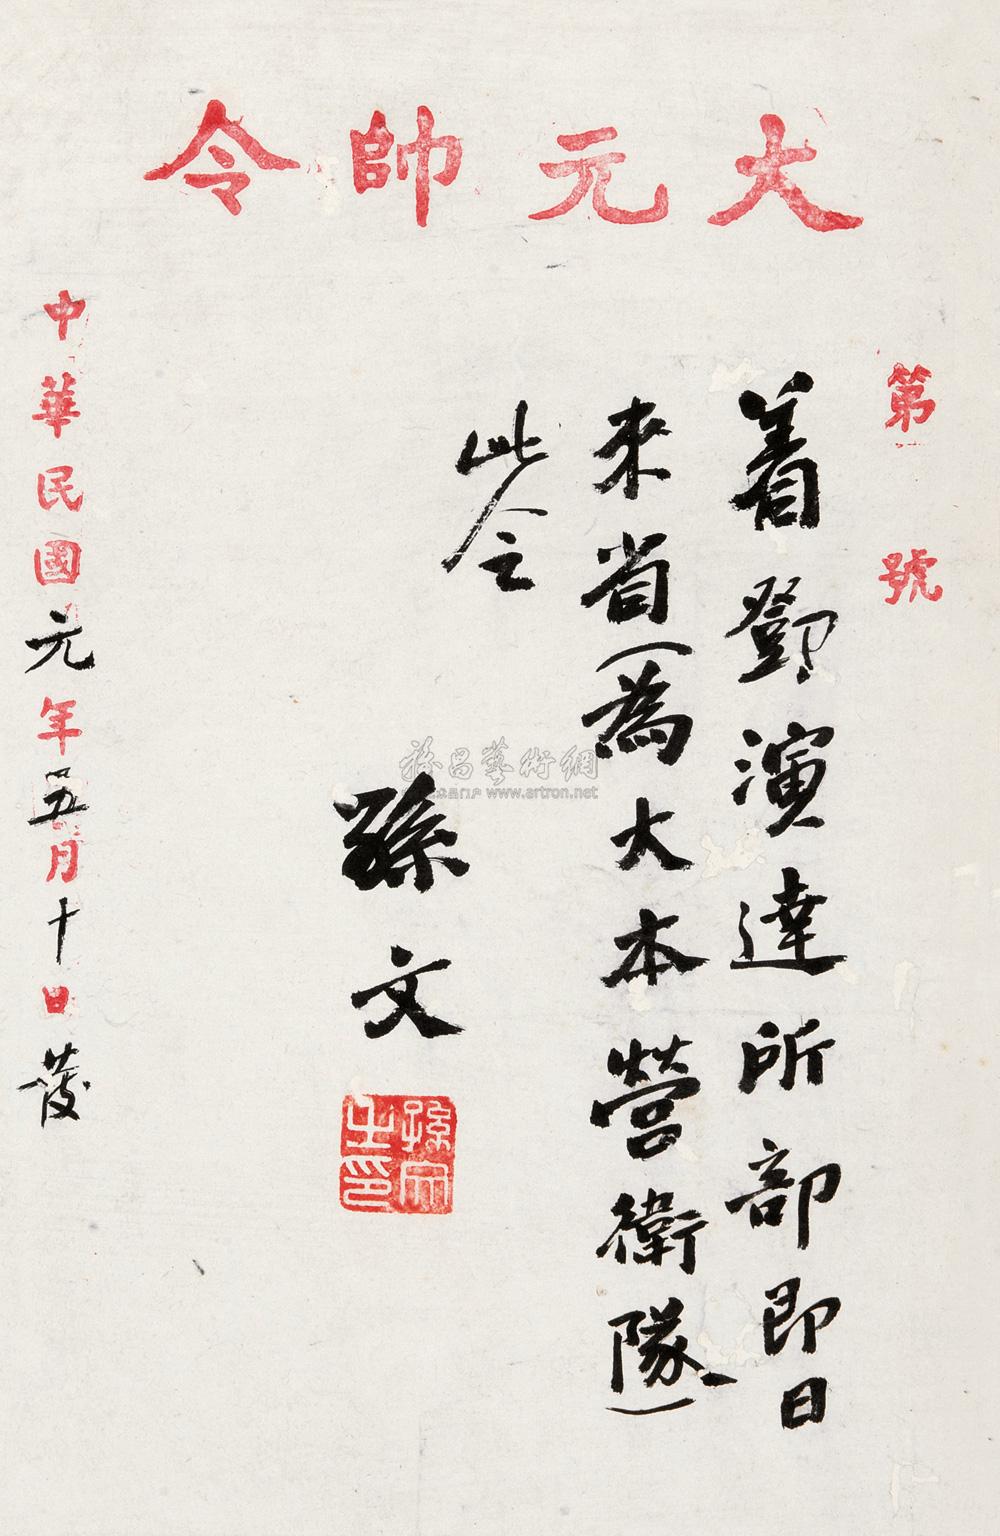 大元帥令
第 號
着鄧演達所部即日
來省（為大本營衛隊）
此令
孫文
孫文之印
中華民國元年五月十日發
www.artron.net